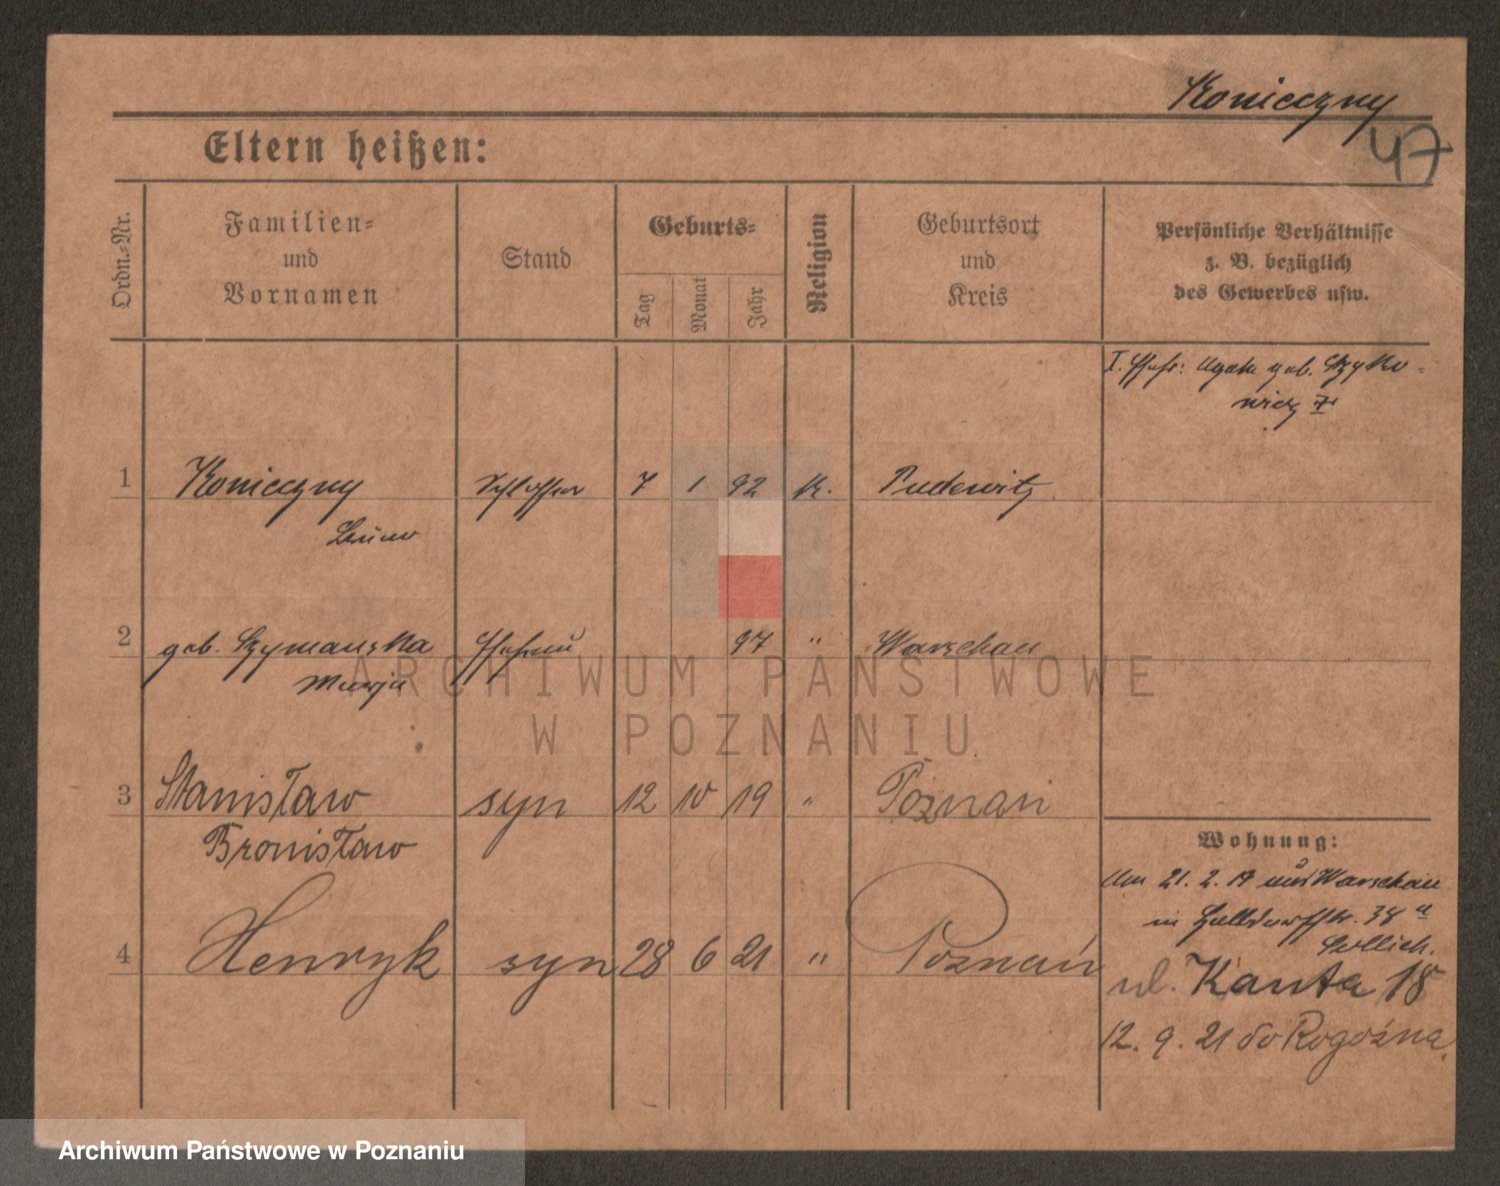 Konieczny
47
Eltern heißen:
Ordn.-Nr.
Familien-
und
Vornamen
Stand
Geburts-
Tag
Monat
Jahr
Religion
Geburtsort
und
Kreis
Persönliche Verhältnisse
z. B. bezüglich
des Gewerbes usw.
I. Ehefr: Agate geb. Szyko-
wicz
1 Konieczny Schlosser 7 1 92 K. Pudewitz
Bruno
2 geb. Szymanska Ehefrau 97 " Warschau
Marja
3 Stanisław syn 12 10 19 " Poznań
Bronisław
Wohnung:
Am 21. 2. 19 aus Warschau
in 38 a
4 Henryk syn 28 6 21 " Poznań
ul. Kanta 18
12. 9. 21 do Rogoźna.
ARCHIWUM PAŃSTWOWE
W POZNANIU
Archiwum Państwowe w Poznaniu